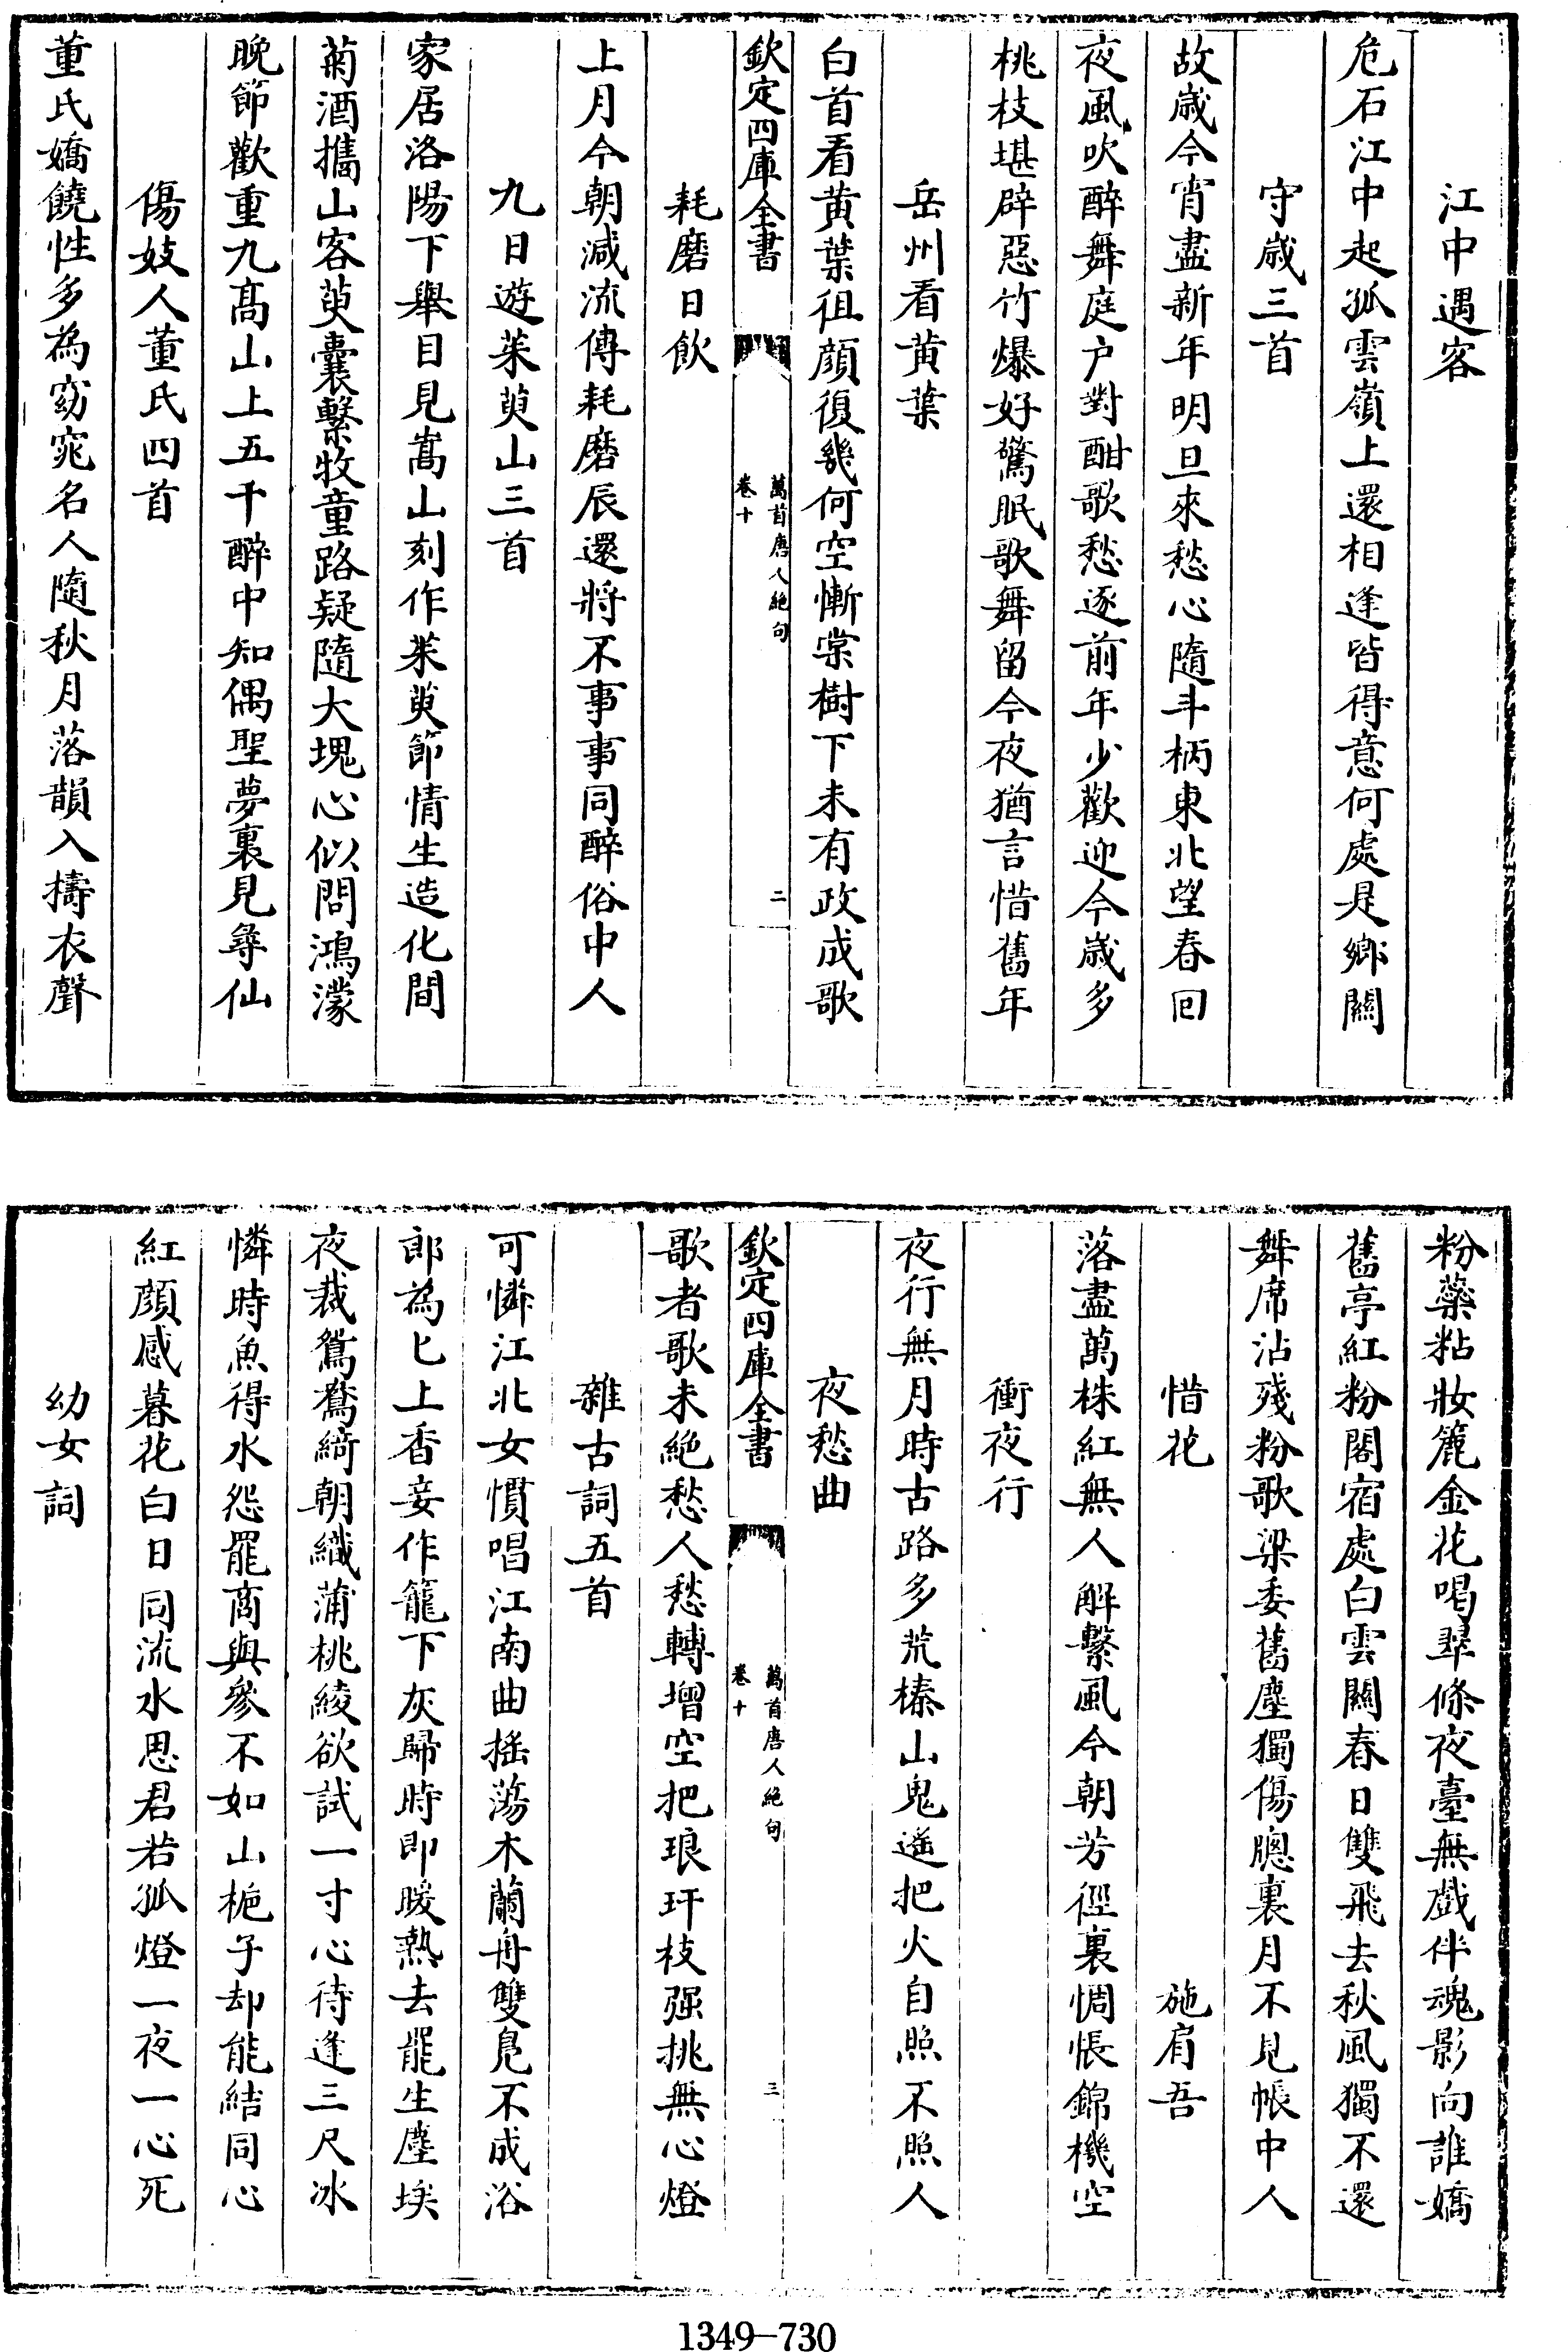 江中遇客
危石江中起孤雲嶺上還相逢皆得意何處是鄉關
守歳三首
故歳今宵盡新年明旦來愁心隨斗柄東北望春回
夜風吹醉舞庭户對酣歌愁逐前年少歡迎今歳多
桃枝堪辟惡竹爆好驚眠歌舞留今夜猶言惜舊年
岳州看黄葉
白首看黄葉徂顔復幾何空慚棠樹下未有政成歌
欽定四庫全書
萬首唐人絶句
卷十
二
耗磨日飲
上月今朝減流傳耗磨辰還將不事事同醉俗中人
九日遊茱萸山三首
家居洛陽下舉目見嵩山刻作茱萸節情生造化間
菊酒攜山客萸囊繫牧童路疑隨大塊心似問鴻濛
晚節歡重九髙山上五千醉中知偶聖夢裏見尋仙
傷妓人董氏四首
董氏嬌饒性多為窈窕名人隨秋月落韻入擣衣聲
粉蘂粘妝簏金花喝翠條夜臺無戲伴魂影向誰嬌
舊亭紅粉閣宿處白雲關春日雙飛去秋風獨不還
舞席沾殘粉歌梁委舊塵獨傷牕裏月不見帳中人
惜花
施肩吾
落盡萬株紅無人解繫風今朝芳徑裏惆悵錦機空
衝夜行
夜行無月時古路多荒榛山鬼遥把火自照不照人
夜愁曲
欽定四庫全書
萬首唐人絶句
卷十
三
歌者歌未絶愁人愁轉增空把琅玕枝强挑無心燈
雜古詞五首
可憐江北女慣唱江南曲搖蕩木蘭舟雙鳧不成浴
郎為匕上香妾作籠下灰歸時即暖熱去罷生塵埃
夜裁鴛鴦綺朝織蒲桃綾欲試一寸心待逢三尺冰
憐時魚得水怨罷商與參不如山梔子却能結同心
紅顔感暮花白日同流水思君若孤燈一夜一心死
幼女詞
1349-730